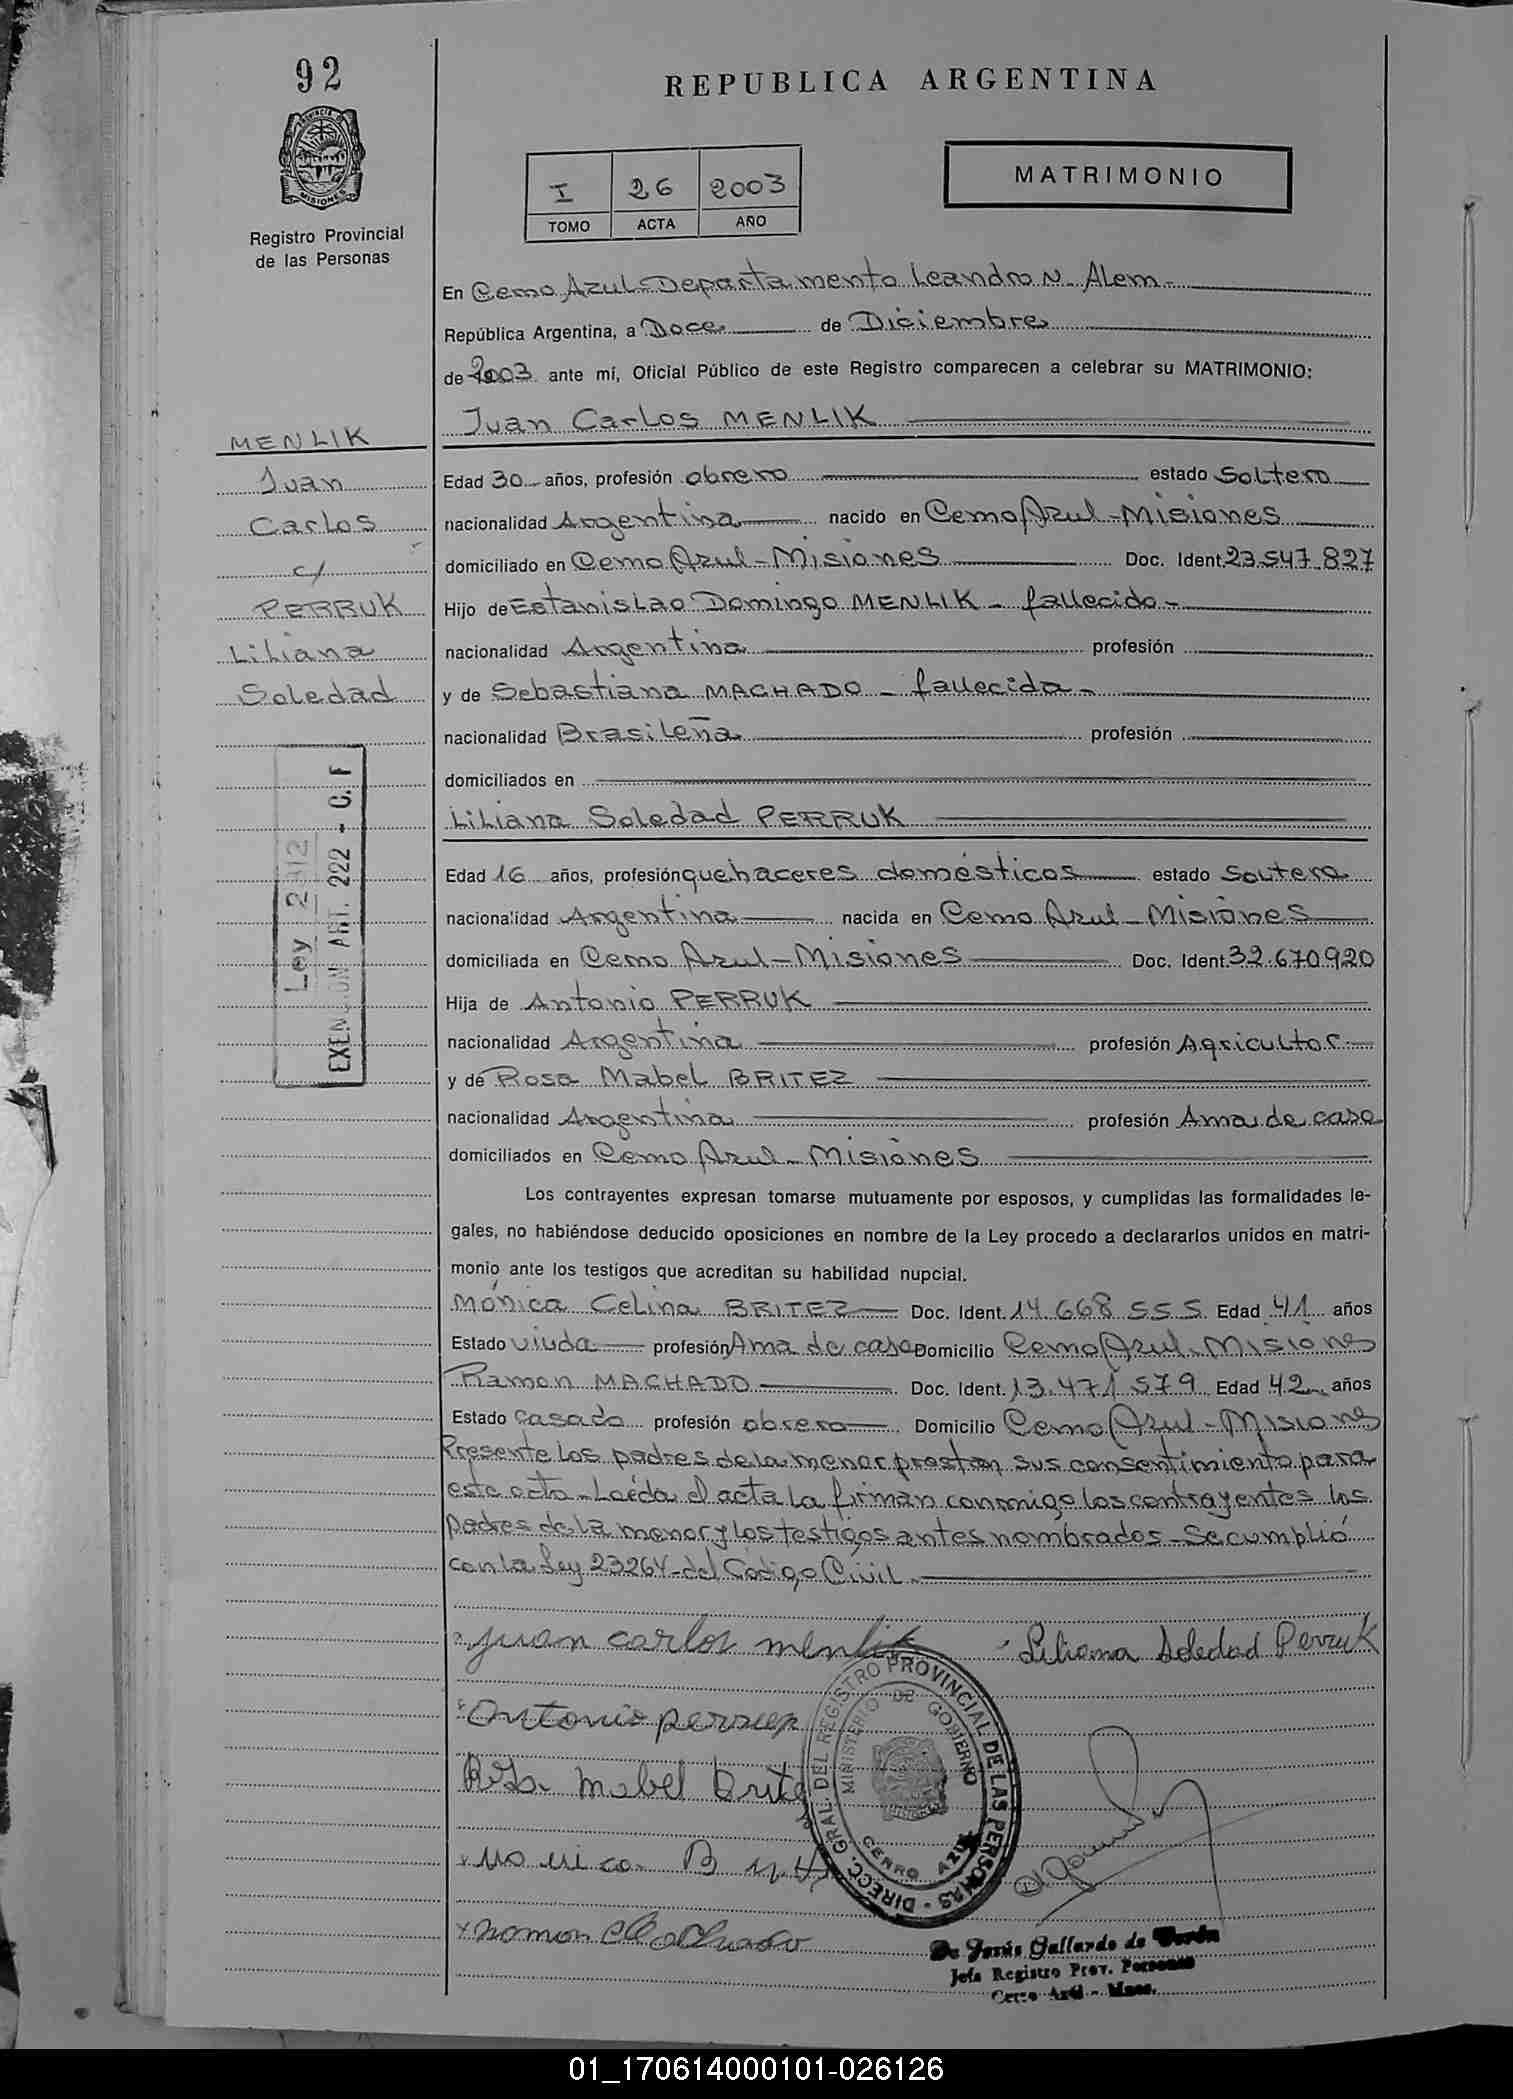 92
REPUBLICA ARGENTINA
PROVINCIA D
MISIONES
Registro Provincial
de las Personas
I 26 2003
TOMO ACTA AÑO
MATRIMONIO
En Cerro Azul-Departamento Leandro N. Alem-
República Argentina, a Doce de Diciembre
de 2003 ante mí, Oficial Público de este Registro comparecen a celebrar su MATRIMONIO:
Juan Carlos MENLIK
MENLIK
Juan
Carlos
c/
PERRUK
Liliana
Soledad
Ley 2
EXEN ART. 222 - C. F
Edad 30 años, profesión obrero estado Soltero
nacionalidad Argentina nacido en Cerro Azul-Misiones
domiciliado en Cerro Azul-Misiones Doc. Ident. 23.547.827
Hijo de Estanislao Domingo MENLIK - fallecido -
nacionalidad Argentina profesión
y de Sebastiana MACHADO - fallecida -
nacionalidad Brasileña profesión
domiciliados en
Liliana Soledad PERRUK
Edad 16 años, profesión quehaceres domésticos estado Soltera
nacionalidad Argentina nacida en Cerro Azul-Misiones
domiciliada en Cerro Azul-Misiones Doc. Ident. 32.670.920
Hija de Antonio PERRUK
nacionalidad Argentina profesión Agricultor
y de Rosa Mabel BRITEZ
nacionalidad Argentina profesión Ama de casa
domiciliados en Cerro Azul-Misiones
Los contrayentes expresan tomarse mutuamente por esposos, y cumplidas las formalidades le-
gales, no habiéndose deducido oposiciones en nombre de la Ley procedo a declararlos unidos en matri-
monio ante los testigos que acreditan su habilidad nupcial.
Mónica Celina BRITEZ Doc. Ident. 14.668.555 Edad 41 años
Estado viuda profesión Ama de casa Domicilio Cerro Azul-Misiones
Ramon MACHADO Doc. Ident. 13.471.579 Edad 42 años
Estado casado profesión obrero Domicilio Cerro Azul-Misiones
Presente los padres de la menor prestan sus consentimiento para
este acto-Leída el acta la firman conmigo los contrayentes los
padres de la menor y los testigos antes nombrados-Se cumplió
con la Ley 23264-del Código Civil
Juan carlos menlik Liliana Soledad Perruk
Antonio perruk
Rosa Mabel Brite
Monica B
Ramon Machado
DIRECC. GRAL. DEL REGISTRO PROVINCIAL DE LAS PERSONAS
MINISTERIO DE GOBIERNO
CERRO AZUL
De Jesús Gallardo de
Jefa Registro Prov. Personas
Cerro Azul - Mnes.
01_170614000101-026126